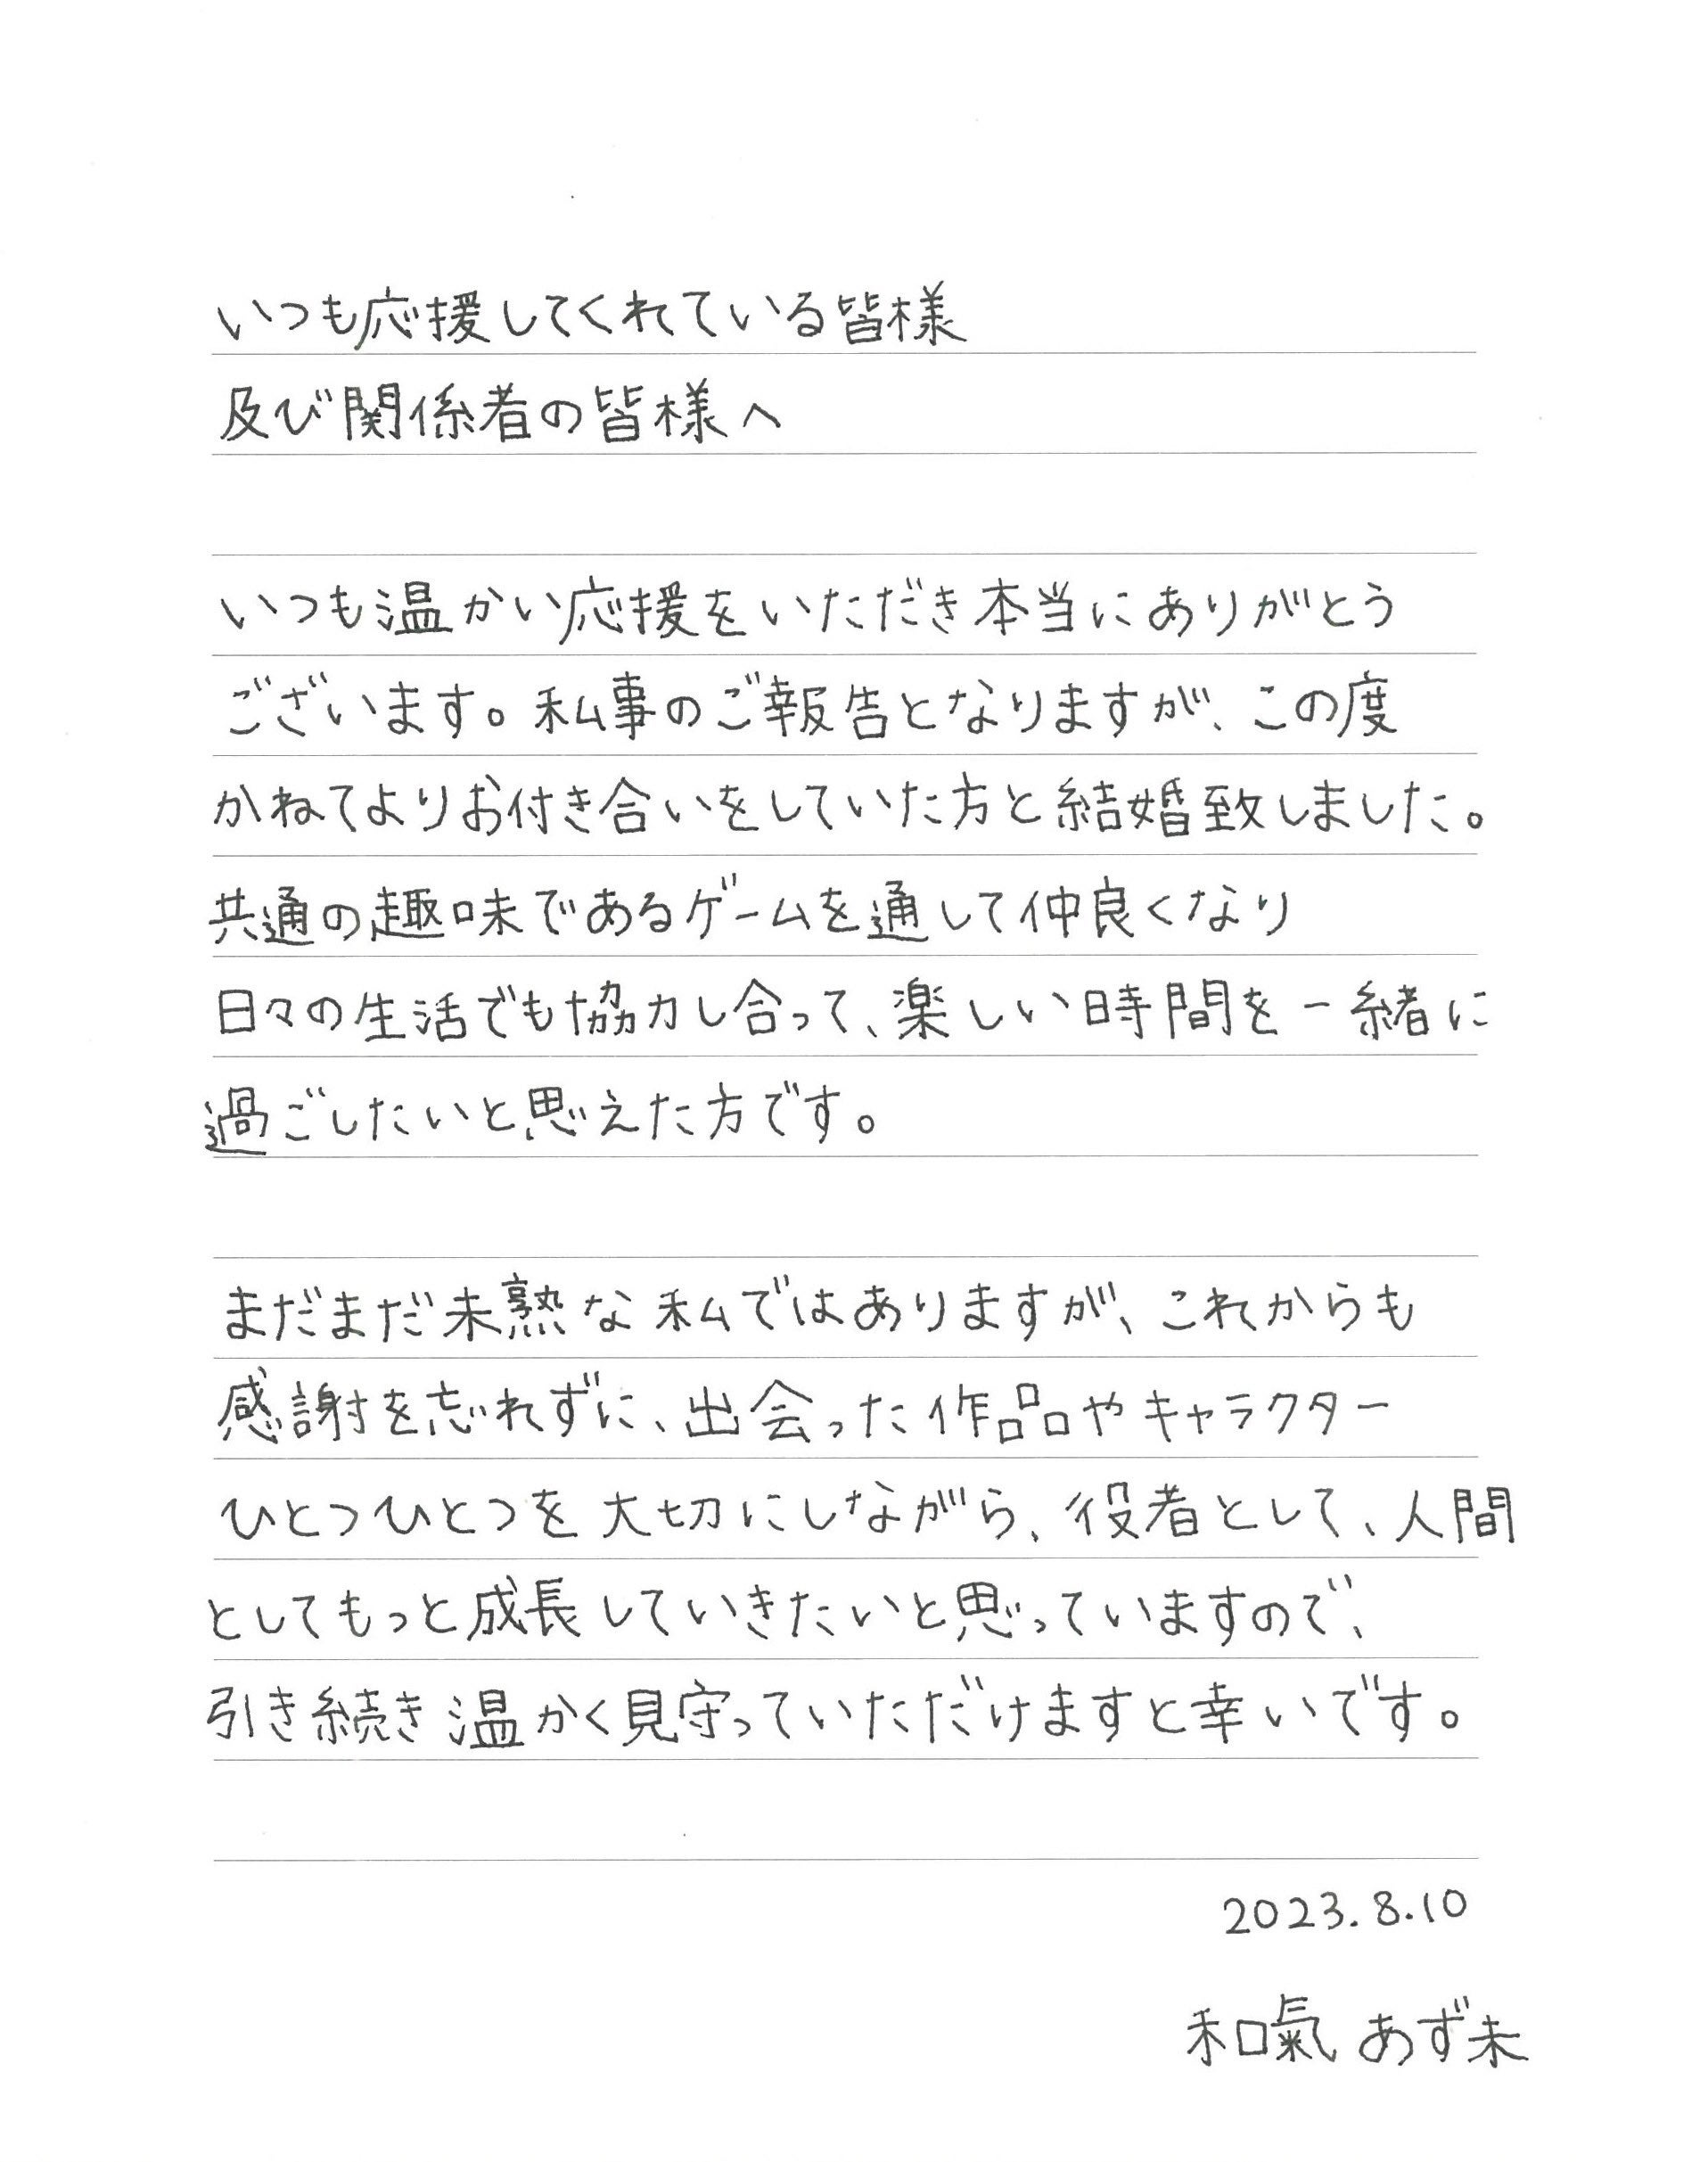 いつも応援してくれている皆様
及び関係者の皆様へ
いつも温かい応援をいただき本当にありがとう
ございます。私事のご報告となりますが、この度
かねてよりお付き合いをしていた方と結婚致しました。
共通の趣味であるゲームを通して仲良くなり
日々の生活でも協力し合って、楽しい時間を一緒に
過ごしたいと思えた方です。
まだまだ未熟な私ではありますが、これからも
感謝を忘れずに、出会った作品やキャラクター
ひとつひとつを大切にしながら、役者として、人間
としてもっと成長していきたいと思っていますので、
引き続き温かく見守っていただけますと幸いです。
2023.8.10
和氣 あず未